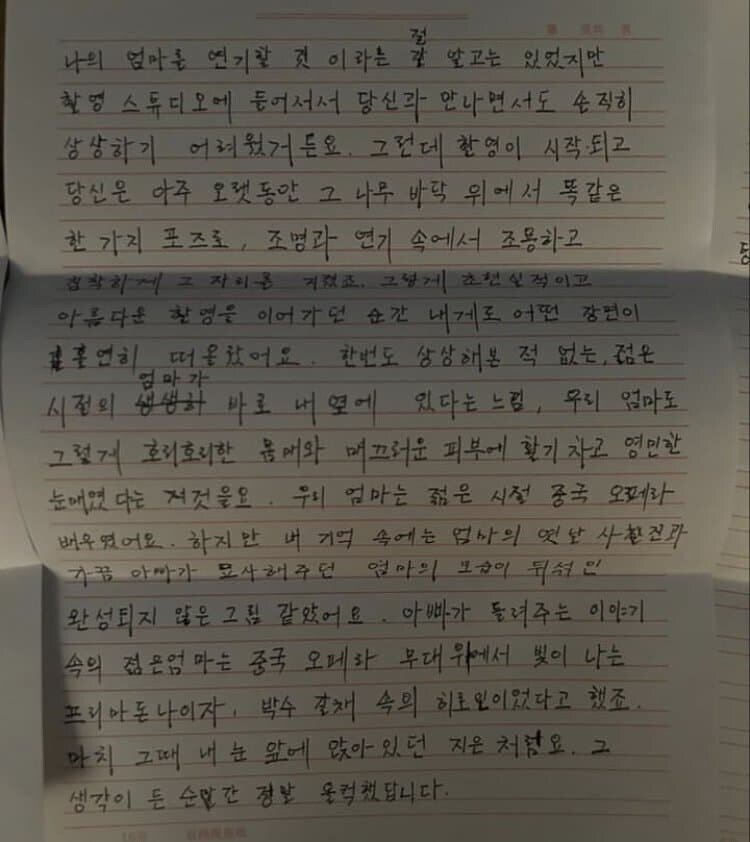 나의 엄마를 연기할 것 이라는 걸 잘 알고는 있었지만
촬영 스튜디오에 들어서서 당신과 만나면서도 솔직히
상상하기 어려웠거든요. 그런데 촬영이 시작되고
당신은 아주 오랫동안 그 나무 바닥 위에서 똑같은
한 가지 포즈로, 조명과 연기 속에서 조용하고
침착하게 그 자리를 지켰죠. 그렇게 초현실적이고
아름다운 촬영을 이어가던 순간 내게로 어떤 장면이
홀연히 떠올랐어요. 한번도 상상해본 적 없는, 젊은
엄마가
시절의 생생하 바로 내 옆에 있다는 느낌, 우리 엄마도
그렇게 호리호리한 몸매와 매끄러운 피부에 활기차고 영민한
눈매였다는 것을요. 우리 엄마는 젊은 시절 중국 오페라
배우였어요. 하지만 내 기억 속에는 엄마의 옛날 사진과
가끔 아빠가 묘사해주던 엄마의 모습이 뒤섞인
완성되지 않은 그림 같았어요. 아빠가 들려주는 이야기
속의 젊은엄마는 중국 오페라 무대 위에서 빛이 나는
프리마돈나이자, 박수 갈채 속의 히로인이었다고 했죠.
마치 그때 내 눈 앞에 앉아있던 지은 처럼요. 그
생각이 든 순간 정말 울컥했답니다.